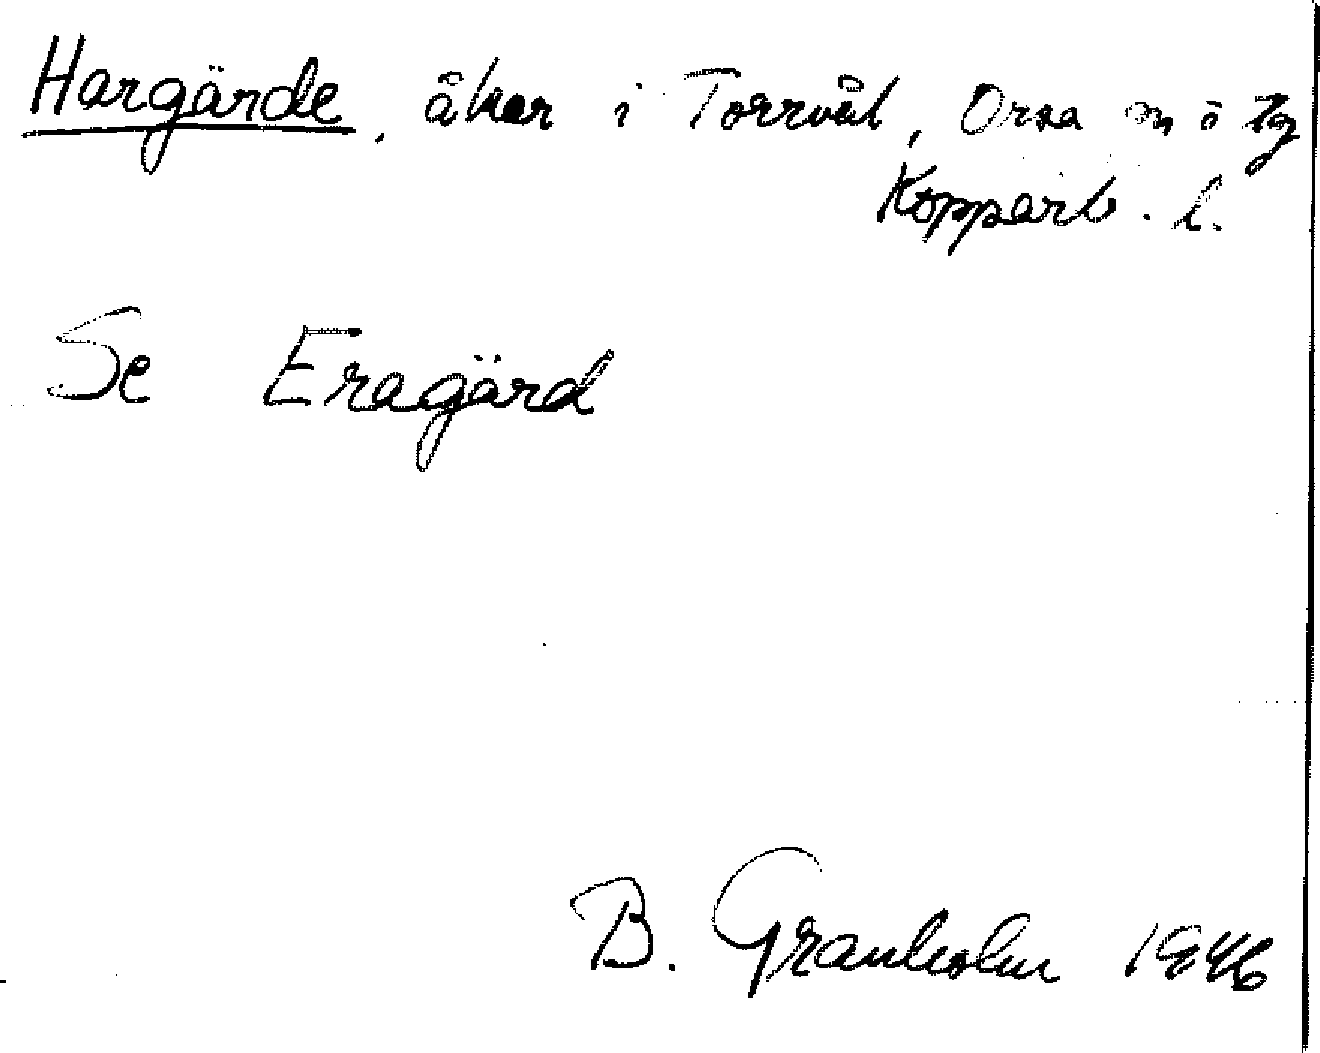 Hargärde, åker i Torrvål, Orsa sn o tg
Kopparb. l.
Se Eragärd
B. Granholm 1946